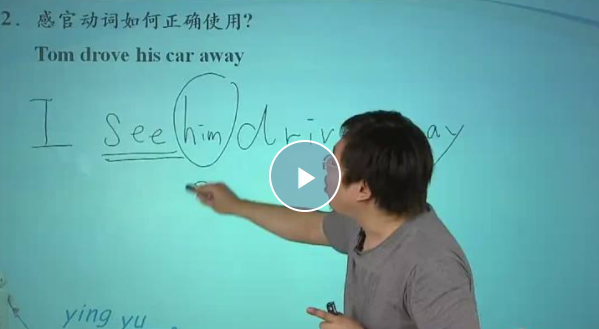 2. 感官动词如何正确使用?
Tom drove his car away
I see him
ying yu